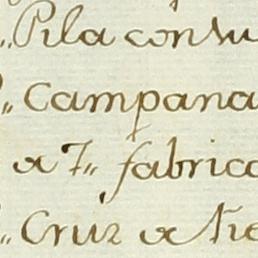 „ Pila con su
„ Campana
a 7„ fabrica
„ Cruz a